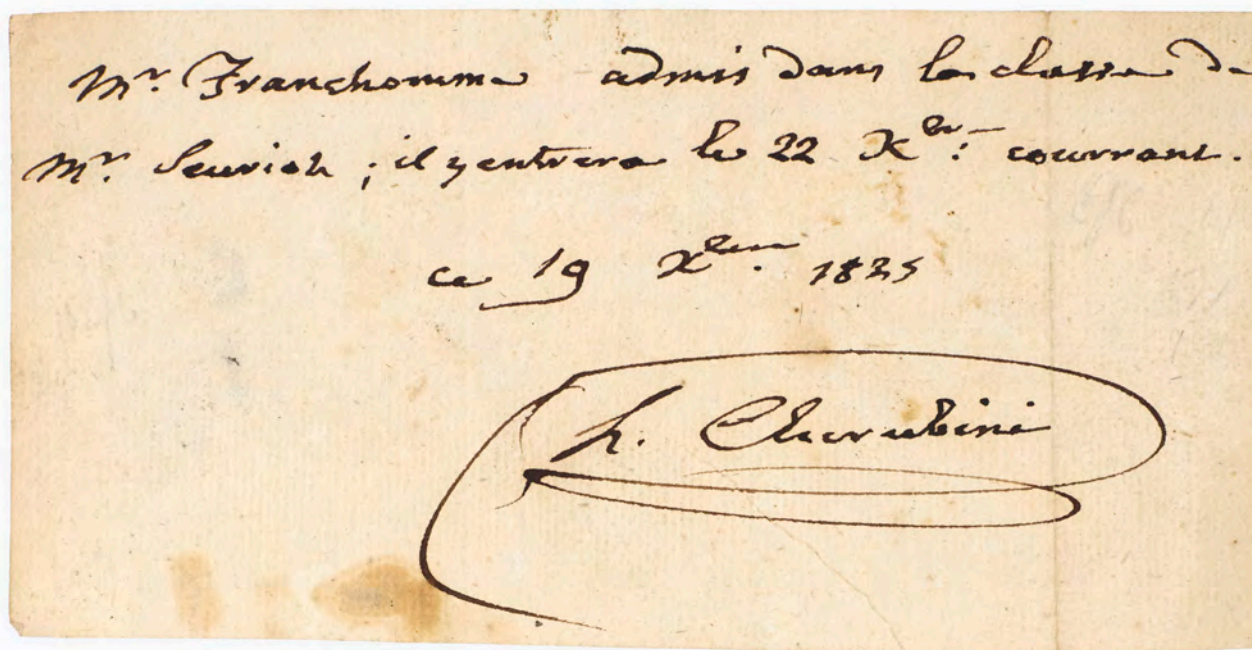 Mr. Franchomme admis dans la classe de
Mr. Seuriot ; il y entrera le 22 Xbr: courrant.
ce 19 Xbre. 1825
L. Cherubini